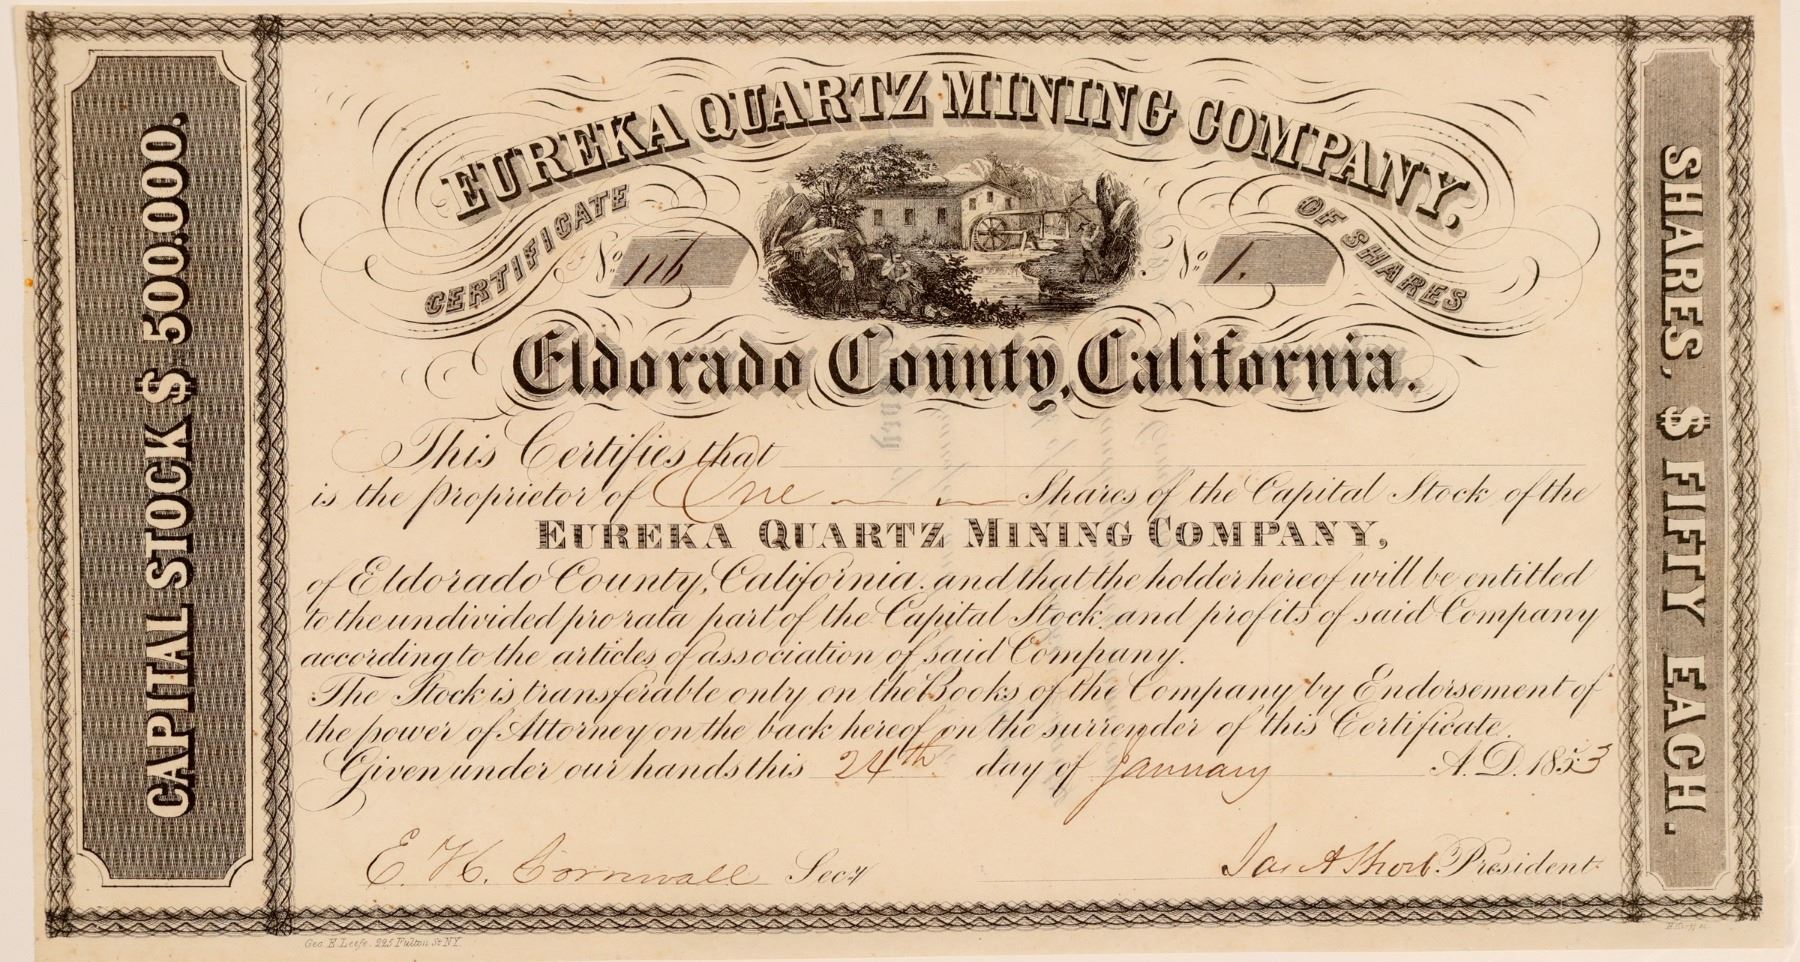 CAPITAL STOCK $ 500.000.
EUREKA QUARTZ MINING COMPANY.
CERTIFICATE OF SHARES
No. 116
No. 1.
Eldorado County, California.
This Certifies that
is the Proprietor of One Shares of the Capital Stock of the
EUREKA QUARTZ MINING COMPANY,
of Eldorado County, California. and that the holder hereof will be entitled
to the undivided pro rata part of the Capital Stock, and profits of said Company
according to the articles of association of said Company.
The Stock is transferable only on the Books of the Company by Endorsement of
the power of Attorney on the back hereof on the surrender of this Certificate.
Given under our hands this 24th day of January A.D. 1853
E. H. Cornwall Secy
Jas A Short President
Geo. E. Leefe. 225 Fulton St. N.Y.
SHARES, $ FIFTY EACH.